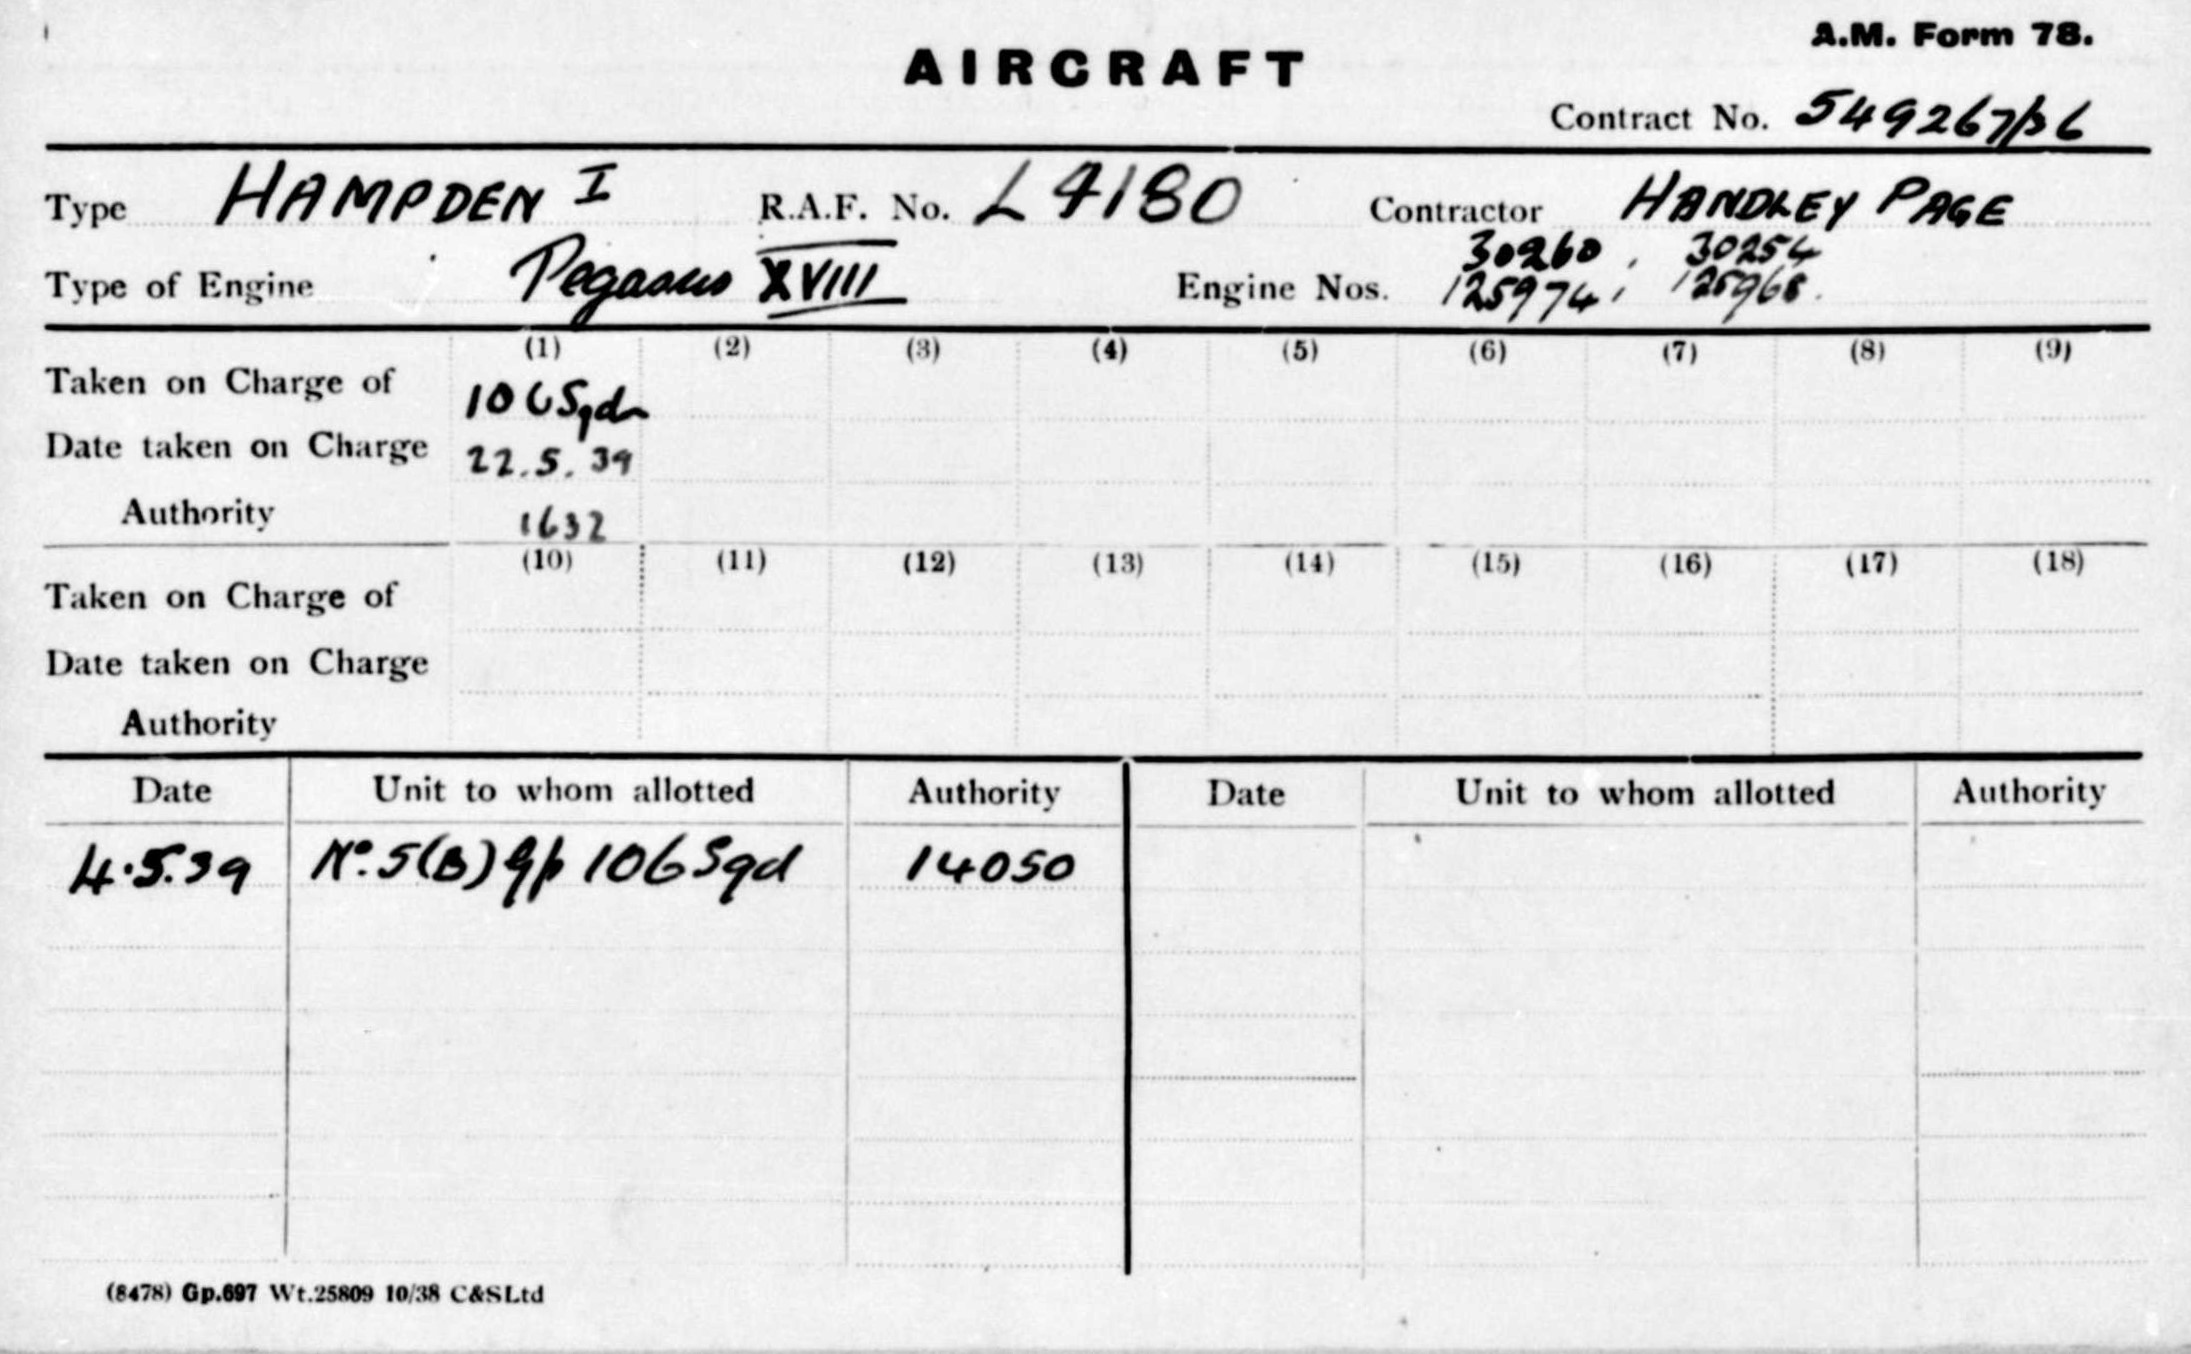 A.M. Form 78.
AIRCRAFT
Contract No. 549267/36
Type HAMPDEN I R.A.F. No. L4180 Contractor HANDLEY PAGE
30260, 30254
Type of Engine Pegasus XVIII Engine Nos. 125974, 125968.
(1) (2) (3) (4) (5) (6) (7) (8) (9)
Taken on Charge of 106 Sqdn
Date taken on Charge 22.5.39
Authority 1632
(10) (11) (12) (13) (14) (15) (16) (17) (18)
Taken on Charge of
Date taken on Charge
Authority
Date Unit to whom allotted Authority Date Unit to whom allotted Authority
4.5.39 No. 5(B) Gp 106 Sqd 14050
(8478) Gp.697 Wt.25809 10/38 C&SLtd